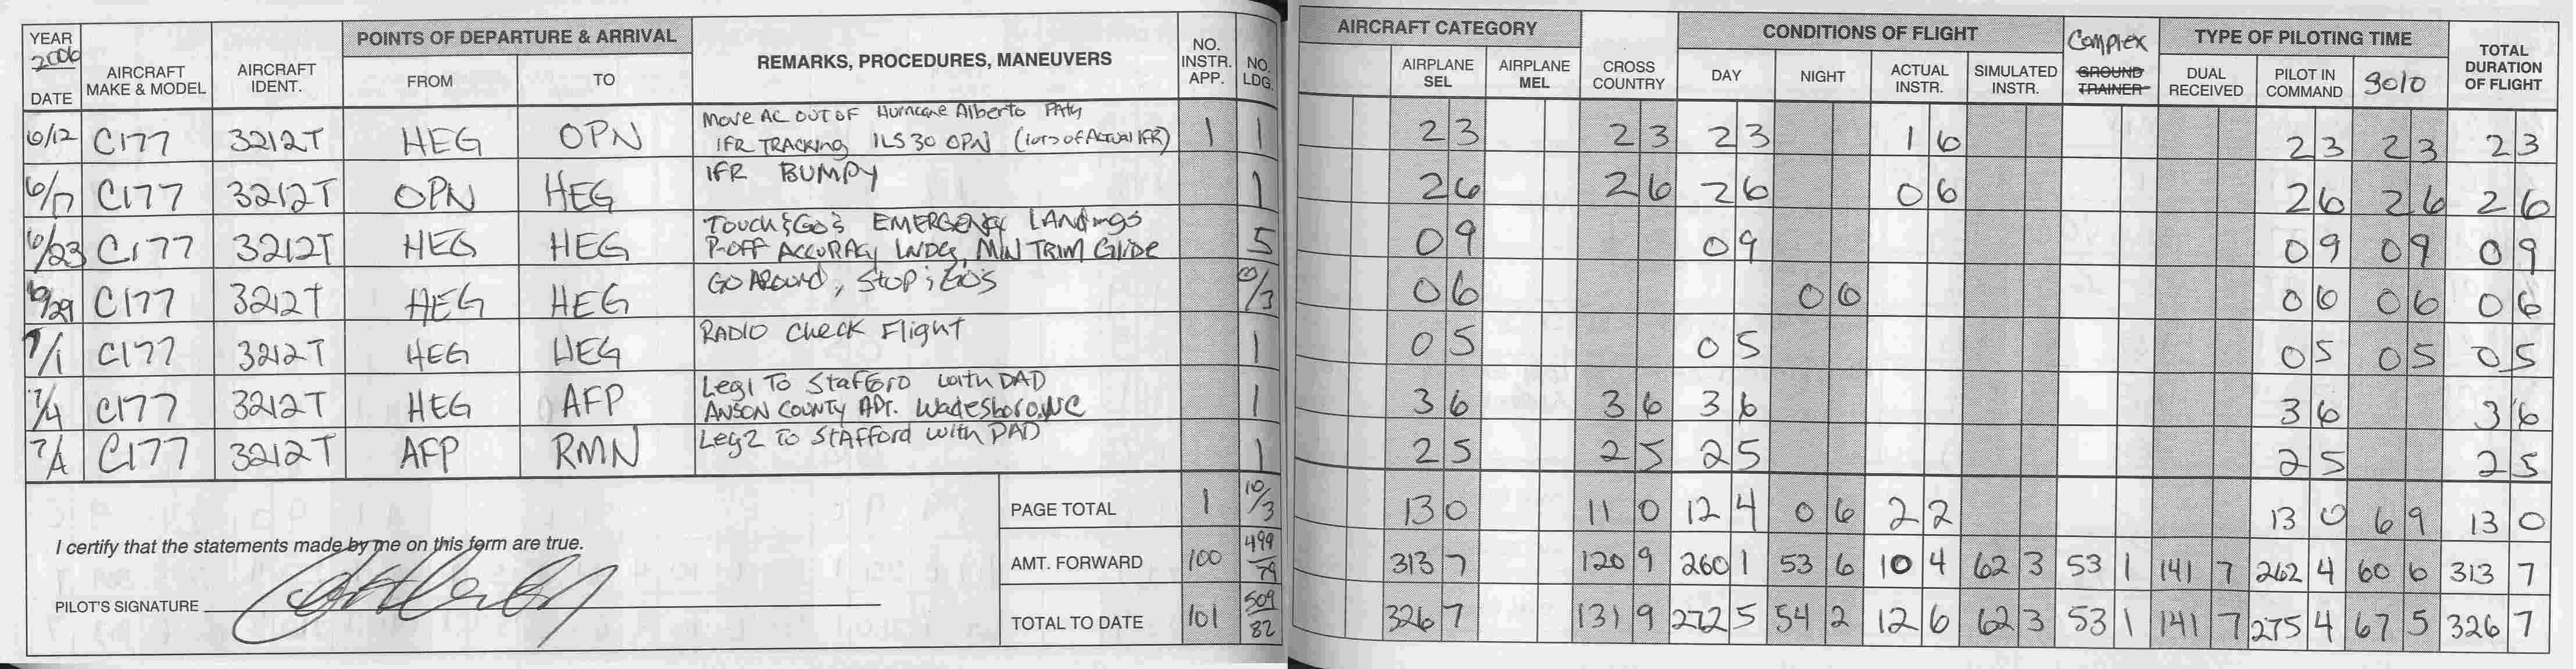 YEAR 2006 DATE
AIRCRAFT MAKE & MODEL
AIRCRAFT IDENT.
POINTS OF DEPARTURE & ARRIVAL
FROM TO
REMARKS, PROCEDURES, MANEUVERS
NO. INSTR. APP.
NO. LDG.
AIRCRAFT CATEGORY
AIRPLANE SEL
AIRPLANE MEL
CROSS COUNTRY
CONDITIONS OF FLIGHT
DAY NIGHT ACTUAL INSTR. SIMULATED INSTR.
Complex
GROUND TRAINER
TYPE OF PILOTING TIME
DUAL RECEIVED
PILOT IN COMMAND
Solo
TOTAL DURATION OF FLIGHT
6/12 C177 3212T HEG OPN Move AC OUT OF Hurricane Alberto PATH
IFR TRACKING ILS 30 OPN (lots of Actual IFR) 1 1 2 3 2 3 2 3 1 6 2 3 2 3 2 3
6/17 C177 3212T OPN HEG IFR BUMPY 1 2 6 2 6 2 6 0 6 2 6 2 6 2 6
6/23 C177 3212T HEG HEG Touch & Go's EMERGENCY LANDINGS
P-OFF ACCURACY LNDG, MIN TRIM Glide 5 0 9 0 9 0 9 0 9 0 9
6/29 C177 3212T HEG HEG GO AROUND, Stop & Go's 0/3 0 6 0 6 0 6 0 6 0 6
7/1 C177 3212T HEG HEG RADIO Check Flight 1 0 5 0 5 0 5 0 5 0 5
7/4 C177 3212T HEG AFP Leg1 To Stafford with DAD
ANSON COUNTY APT. Wadesboro, NC 1 3 6 3 6 3 6 3 6 3 6
7/4 C177 3212T AFP RMN Leg2 To Stafford with DAD 1 2 5 2 5 2 5 2 5 2 5
PAGE TOTAL 1 10/3 13 0 11 0 12 4 0 6 2 2 13 0 6 9 13 0
I certify that the statements made by me on this form are true.
AMT. FORWARD 100 499/79 313 7 120 9 260 1 53 6 10 4 62 3 53 1 141 7 262 4 60 6 313 7
PILOT'S SIGNATURE
TOTAL TO DATE 101 509/82 326 7 131 9 272 5 54 2 12 6 62 3 53 1 141 7 275 4 67 5 326 7